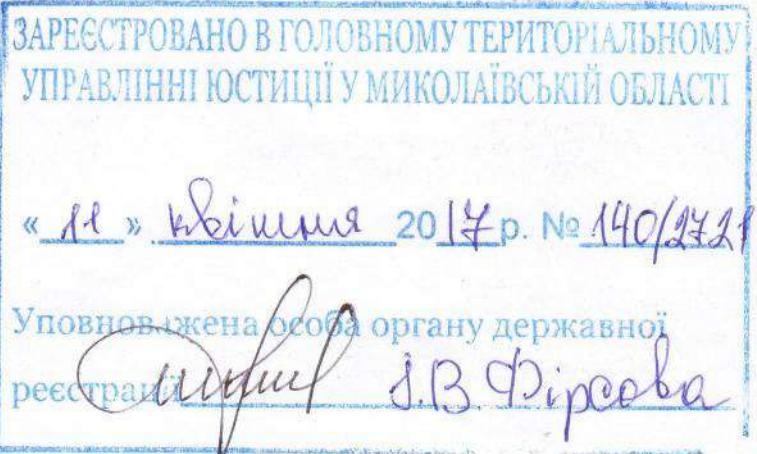 ЗАРЕЄСТРОВАНО В ГОЛОВНОМУ ТЕРИТОРІАЛЬНОМУ
УПРАВЛІННІ ЮСТИЦІЇ У МИКОЛАЇВСЬКІЙ ОБЛАСТІ
« 11 » квітня 2017 р. № 140/2721
Уповноважена особа органу державної
реєстрації І.В Фірсова